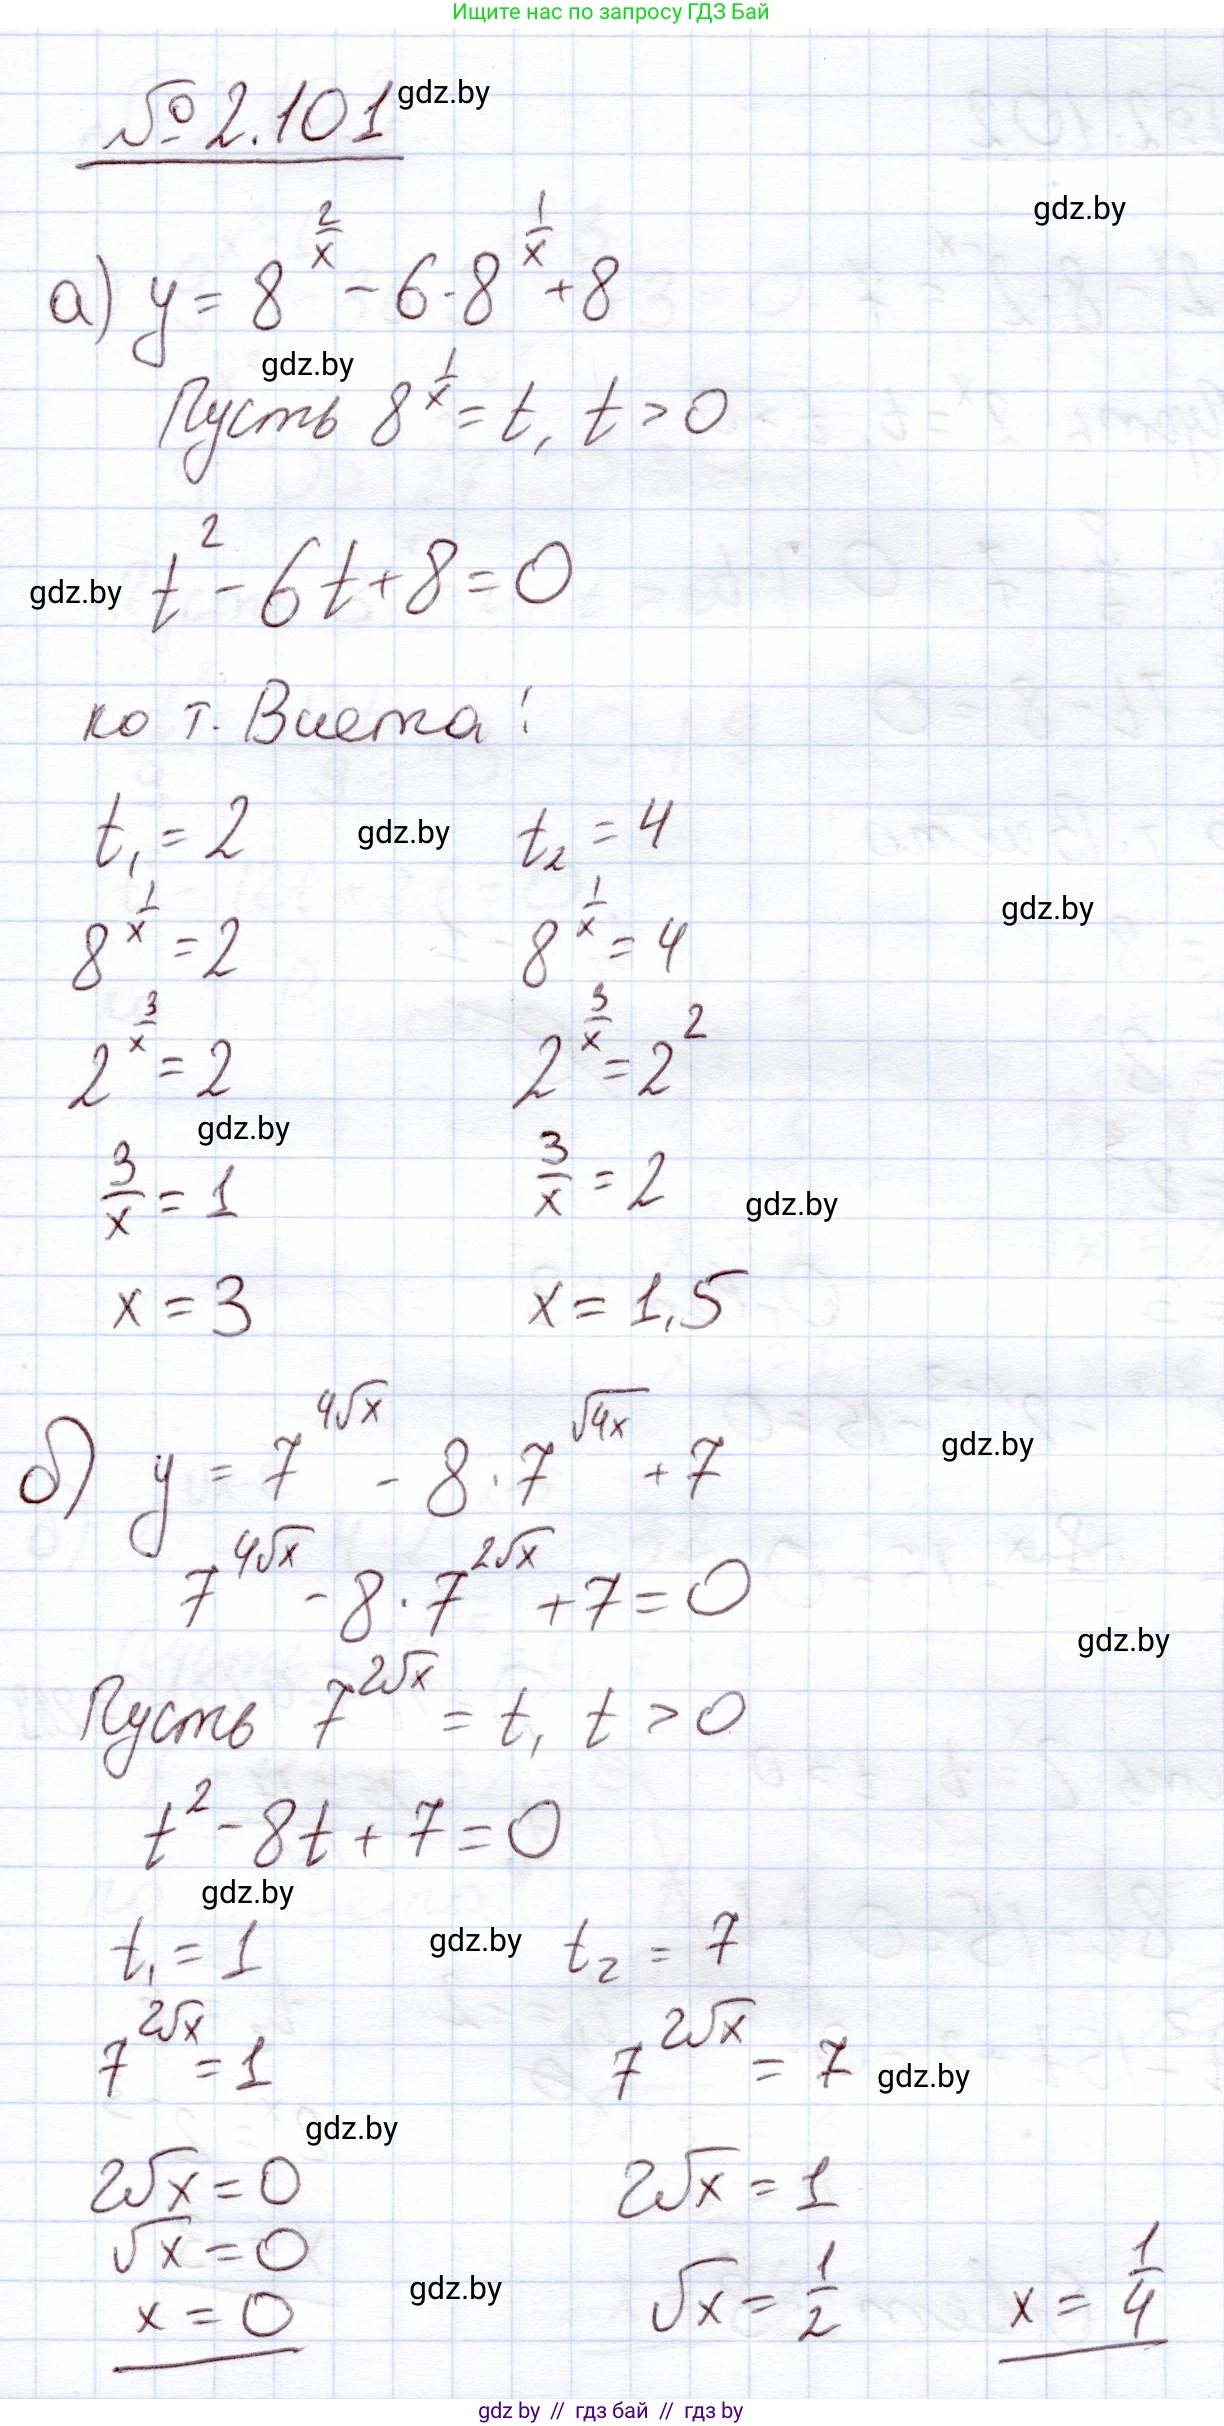 Ищите нас по запросу ГДЗ Бай
№ 2.101 gdz.by
gdz.by
а) y = 8^(2/x) - 6·8^(1/x) + 8
gdz.by
Пусть 8^(1/x) = t, t > 0
gdz.by t² - 6t + 8 = 0
по т. Виета:
t₁ = 2 gdz.by t₂ = 4
8^(1/x) = 2 8^(1/x) = 4 gdz.by
2^(3/x) = 2 2^(3/x) = 2²
gdz.by
3/x = 1 3/x = 2 gdz.by
x = 3 x = 1,5
б) y = 7^(4√x) - 8·7^(√4x) + 7 gdz.by
7^(4√x) - 8·7^(2√x) + 7 = 0
gdz.by
Пусть 7^(2√x) = t, t > 0
t² - 8t + 7 = 0
gdz.by
t₁ = 1 gdz.by t₂ = 7
7^(2√x) = 1 7^(2√x) = 7 gdz.by
gdz.by
2√x = 0 2√x = 1
√x = 0
x = 0 gdz.by √x = 1/2 x = 1/4
gdz by // гдз бай // гдз by